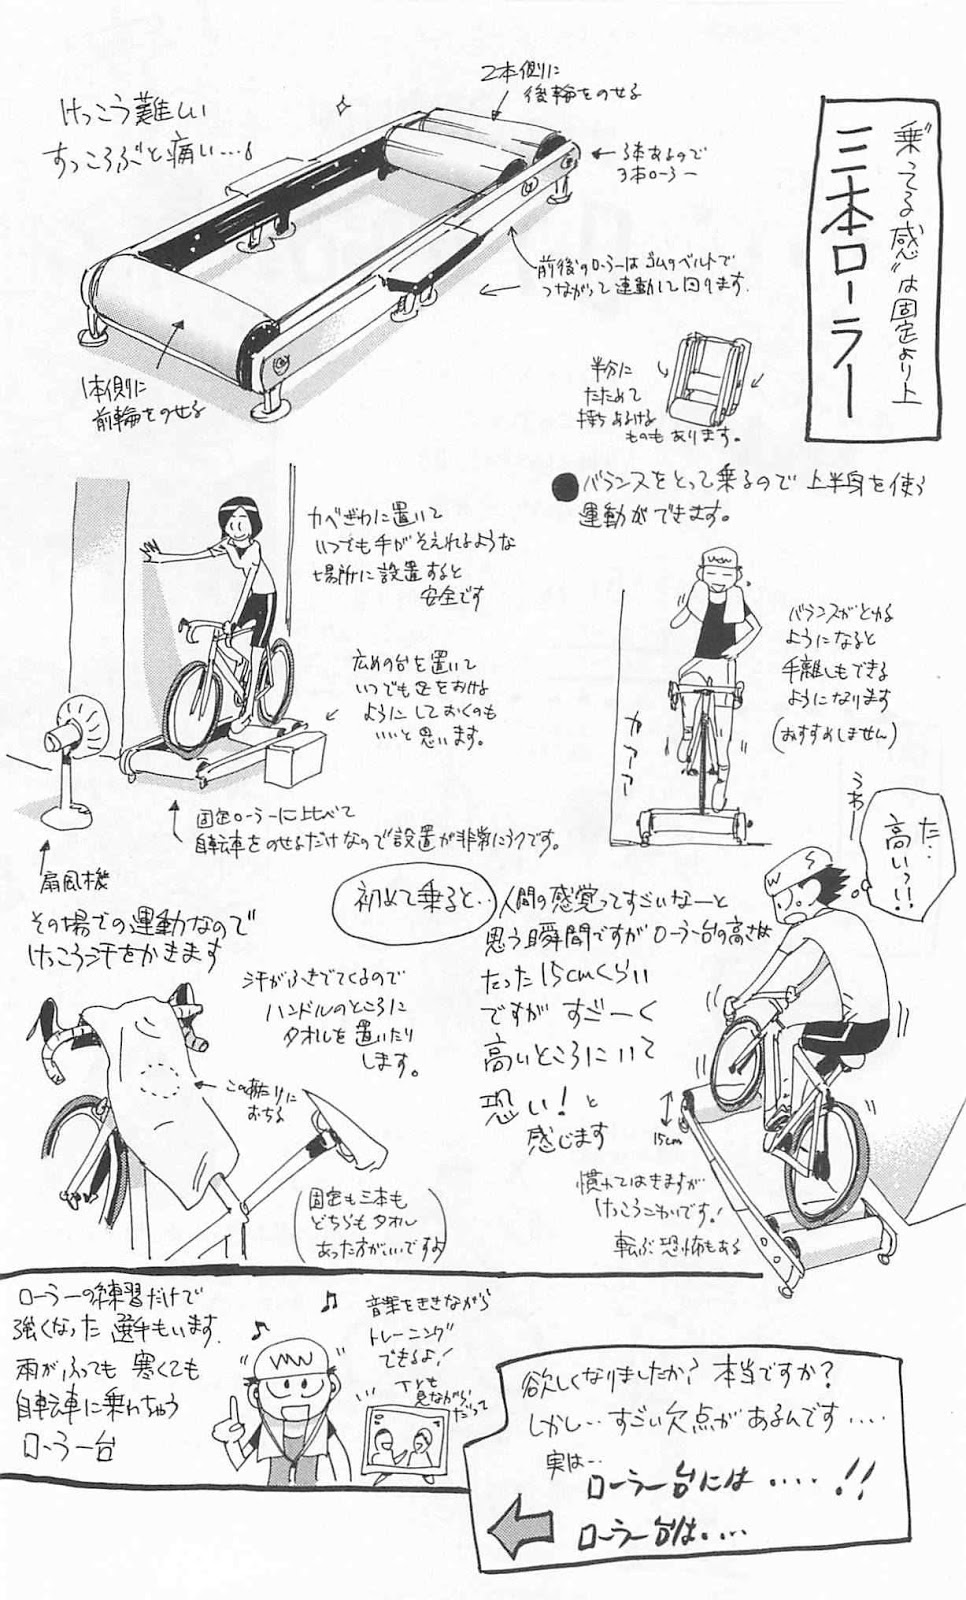 "乗ってる感"は固定より上
三本ローラー
けっこう難しい
すっころぶと痛い…。
2本側に
後輪をのせる
3本あるので
3本ローラー
前後のローラーはゴムのベルトで
つながって連動して回ります。
1本側に
前輪をのせる
半分に
たためて
持ちあるける
ものもあります。
●バランスをとって乗るので上半身を使う
運動ができます。
カベぎわに置いて
いつでも手がそえれるような
場所に設置すると
安全です
広めの台を置いて
いつでも足をおける
ようにしておくのも
いいと思います。
バランスがとれる
ようになると
手離しもできる
ようになります
(おすすめしません)
カアアア
固定ローラーに比べて
自転車をのせるだけなので設置が非常にラクです。
扇風機
その場での運動なので
けっこう汗をかきます
汗がふきでてくるので
ハンドルのところに
タオルを置いたり
します。
この辺りに
おちる
(固定も三本も
どちらもタオル
あった方がいいですよ)
初めて乗ると…
人間の感覚ってすごいなーと
思う瞬間ですがローラー台の高さは
たった15cmくらい
ですがすごーく
高いところにいて
恐い!と
感じます
うわー
た…
高いっ!!
15cm
慣れてはきますが
けっこうこわいです!
転ぶ恐怖もある
ローラーの練習だけで
強くなった選手もいます。
雨がふっても寒くても
自転車に乗れちゃう
ローラー台
音楽をききながら
トレーニング
できるよ!
TVも
見ながら
だって
欲しくなりましたか?本当ですか?
しかし…すごい欠点があるんです….
実は…
ローラー台には….!!
ローラー台は….